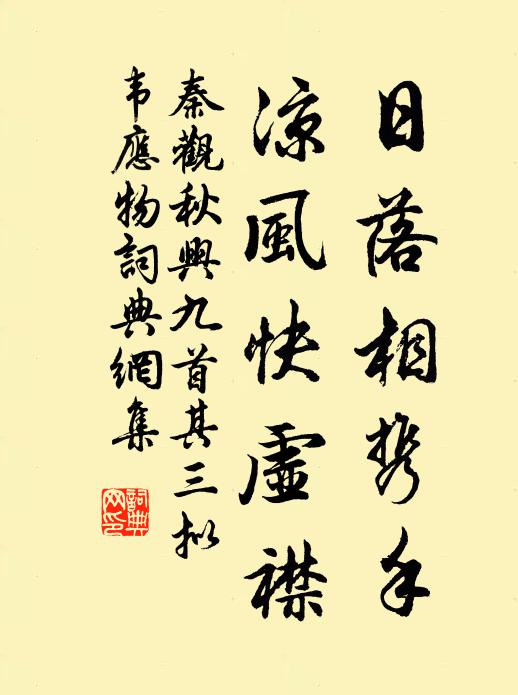 日落相携手
涼風快虛襟
秦觀秋興九首其三拟
韦應物詞典網集
詞典
网印